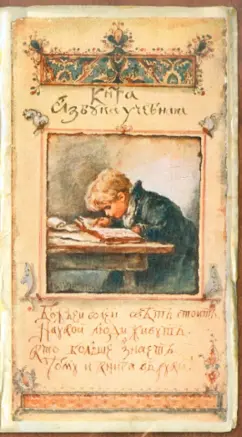 Книга
Азбука учебная
Божьей волей свѣтъ стоитъ
Наукой люди живутъ.
Кто больше знаетъ
Тому и книга въ руки